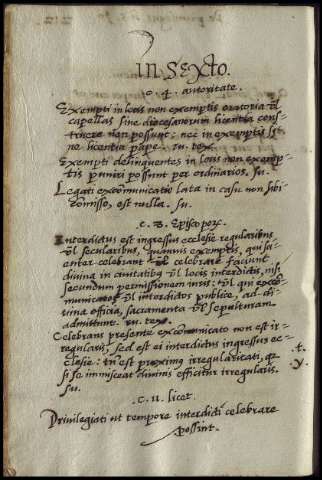 IN SEXTO.
c. 4. autoritate.
Exempti in locis non exemptis oratoria vl
capellas sine diocesanorum licentia cons-
truere non possunt: nec in exemptis si-
ne licentia pape. su. tex.
Exempti delinquentes in locis non exemp-
tis puniri possunt per ordinarios. su.
Legati excommunicatio lata in casu non sibi
comisso, est nulla. su.
c. 8. Episcopor.
Interdictus est ingressus ecclesie regularibus
vl secularibus, quamvis exemptis, qui sci-
enter celebrant vl celebrare faciunt
divina in civitatibus vl locis interdictis, nisi
secundum permissionem iuris: vl qui exco-
municatos vl interdictos publice, ad di-
vina officia, sacramenta vl sepulturam
admittunt. su. tex.
Celebrans presente excomunicato non est ir-
regularis, sed est ei interdictus ingressus ec-
clesie: tn est proximus irregularitati, q
si se inmisceat divinis efficitur irregularis. .t.
su. .y.
c. 11. licet.
Privilegiati ut tempore interdicti celebrare
possint.